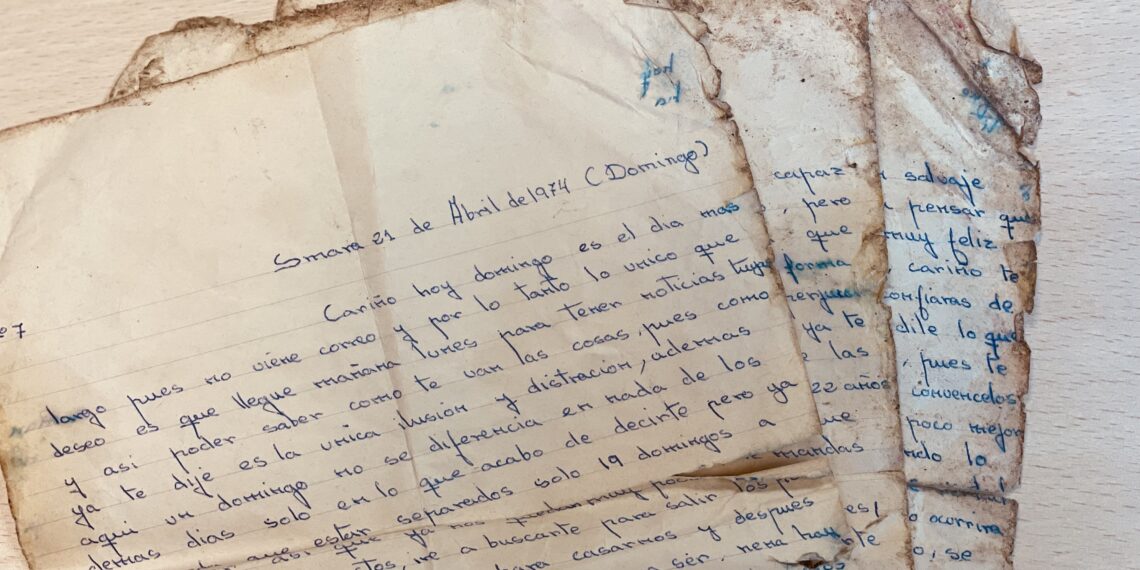 Smara 21 de Abril de 1974 (Domingo)
Cariño hoy domingo es el dia mas
largo pues no viene correo y por lo tanto lo unico que
deseo es que llegue mañana lunes para tener noticias tuyas
y asi poder saber como te van las cosas, pues como
ya te dije es la unica ilusión y distracion, ademas
aqui un domingo no se diferencia en nada de los
demas dias solo en lo que acabo de decirte pero ya
que estar separados solo 19 domingos a
asi que ya nos quedan muy poco
me a buscarte para salir
para casarnos y despues
a sér, nena
capaz
, pero
que
forma
ya te
las
22 años
que
mandas
es
salvaje
pensar que
muy feliz
, cariño te
confiaras de
dile lo que
, pues te
convencelos
poco mejor
ndo lo
o ocurrira
o, se